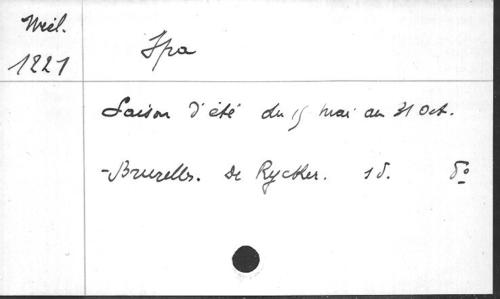 Mél.
1221
Spa
Saison d'été du 15 mai au 31 Oct.
- Bruxelles. De Rycker. s d. 8º